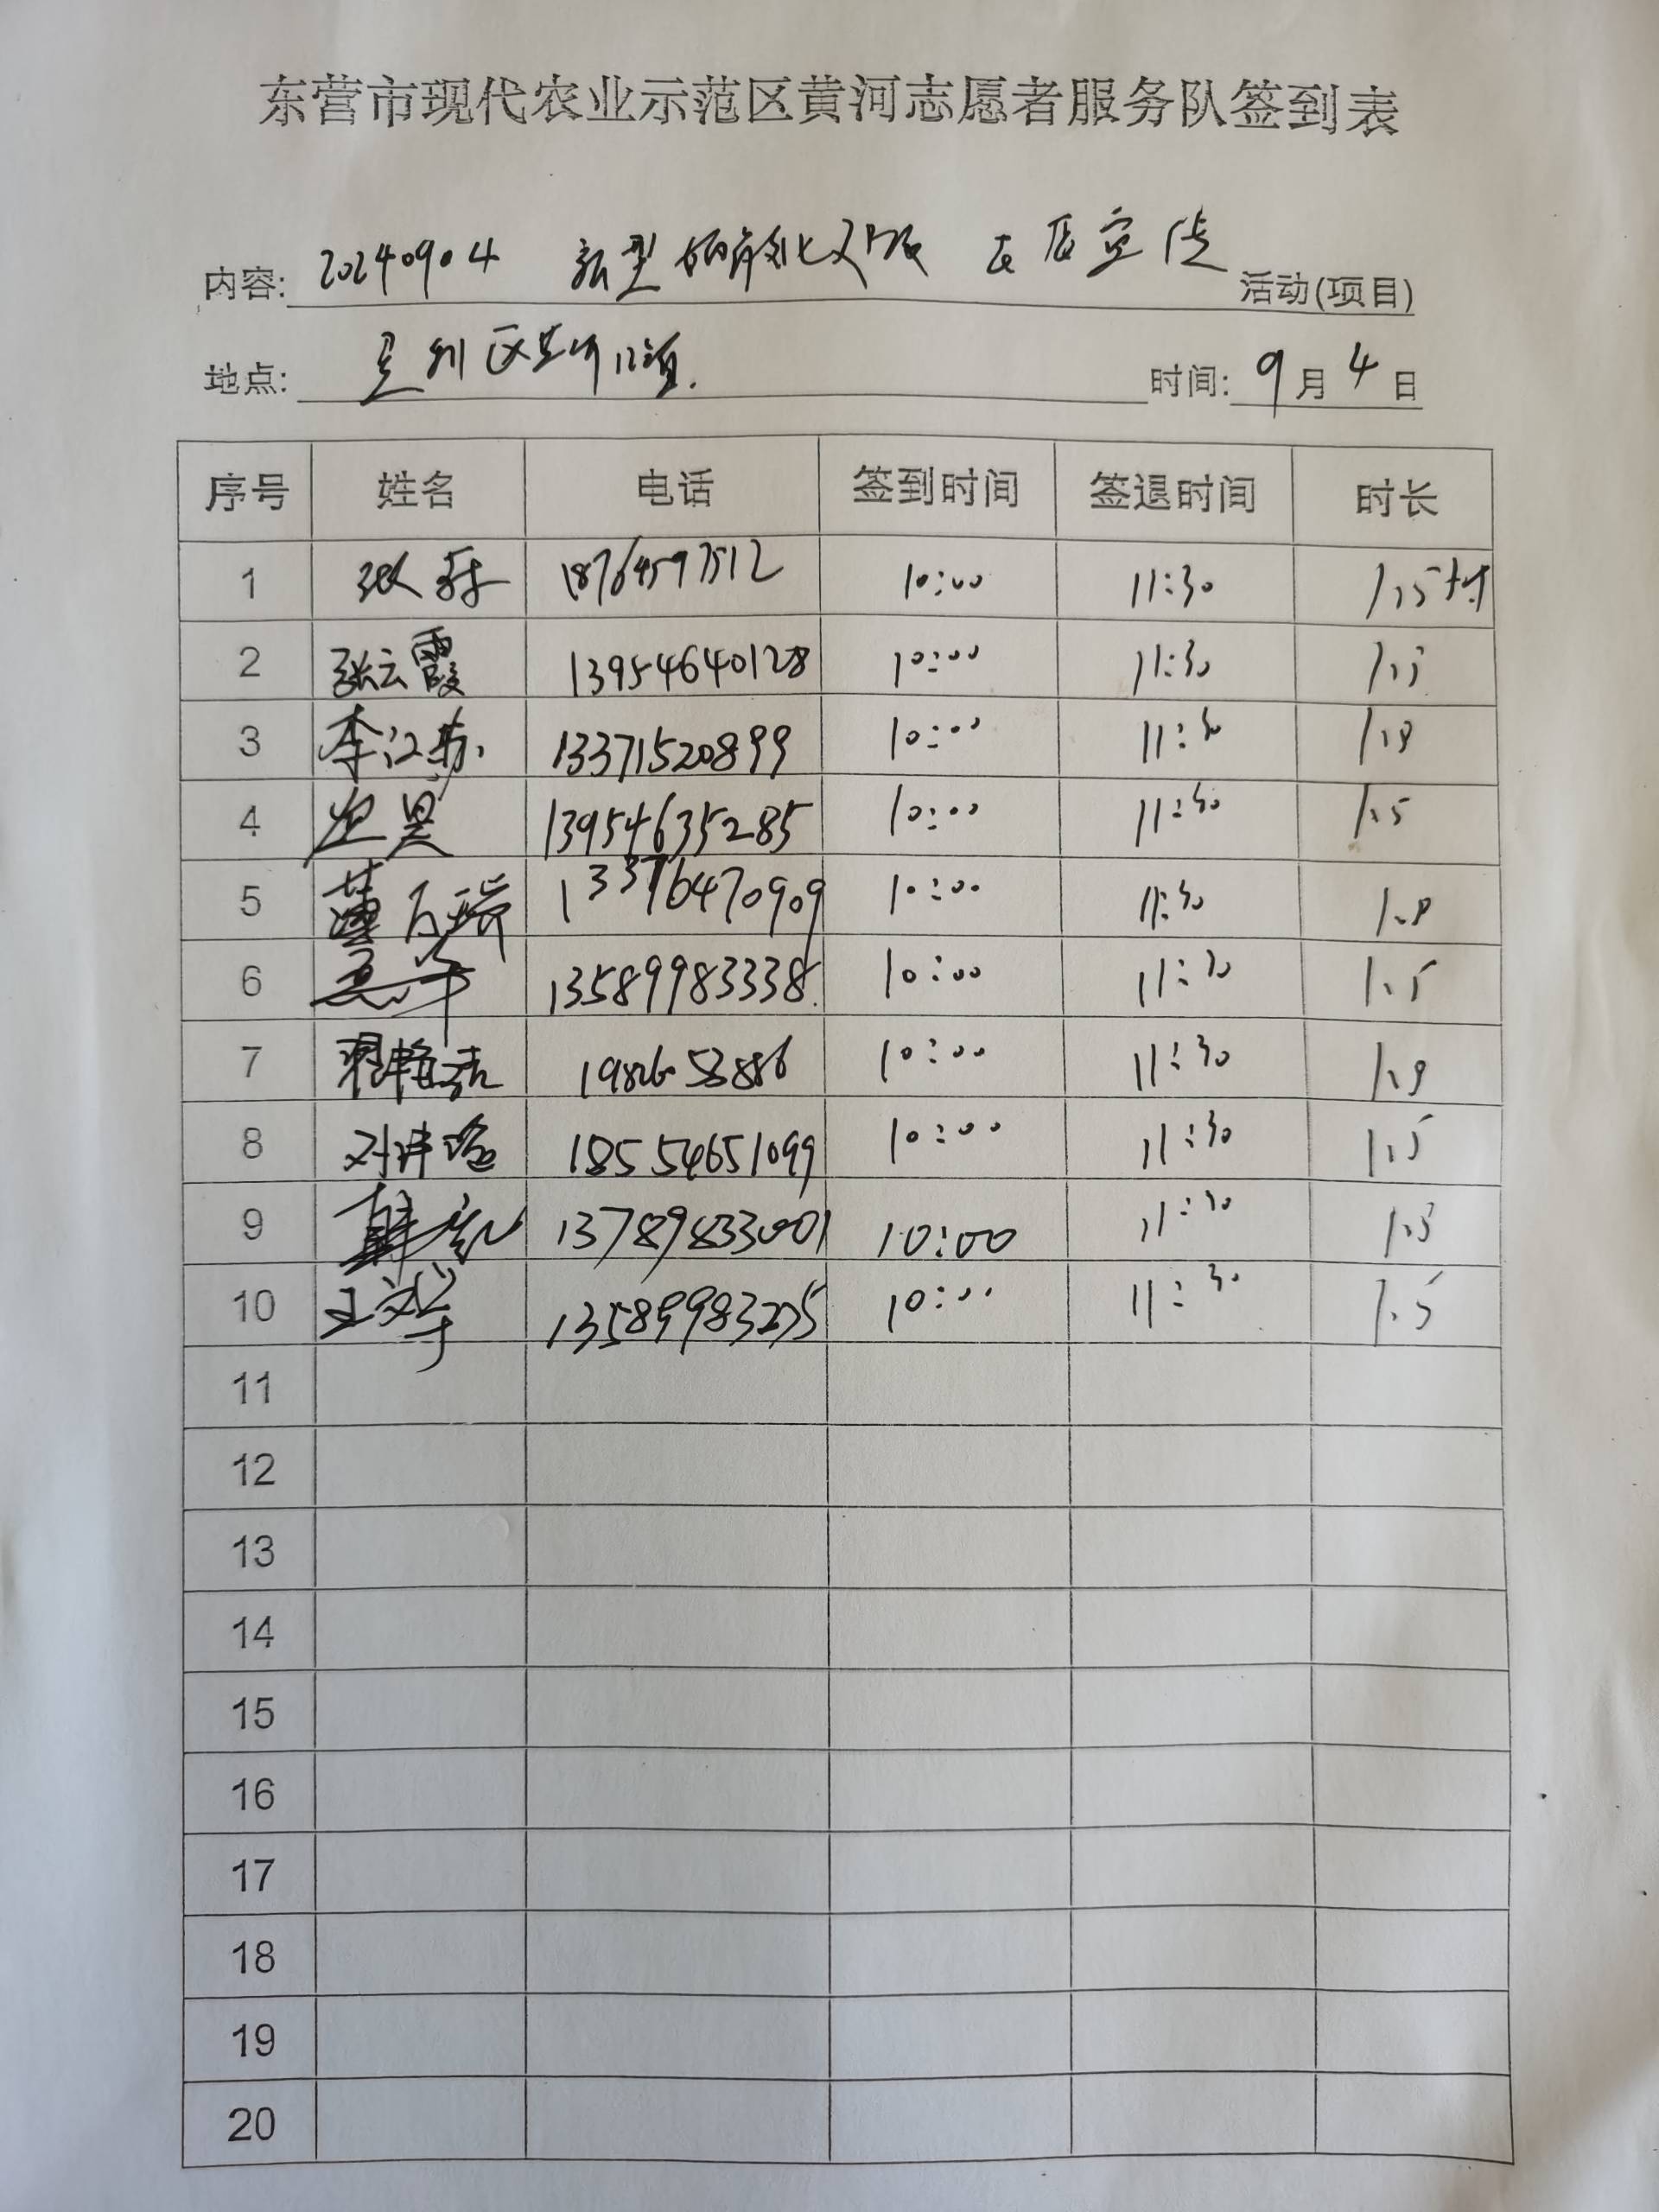 东营市现代农业示范区黄河志愿者服务队签到表
内容: 20240904 新型 宣传 活动(项目)
地点: 时间: 9月4日
序号 姓名 电话 签到时间 签退时间 时长
1 张 18764597512 10:00 11:30 1.5小时
2 张云霞 13954640128 10:00 11:30 1.5
3 李江苏 13371520899 10:00 11:30
4 13954635285 10:00 11:30 1.5
5 13376470909 10:00 11:30
6 13589983338 10:00 11:30 1.5
7 10:00 11:30
8 刘 18554651099 10:00 11:30 1.5
9 13789833001 10:00 11:30 1.5
10 王 10:00 11:30 1.5
11
12
13
14
15
16
17
18
19
20